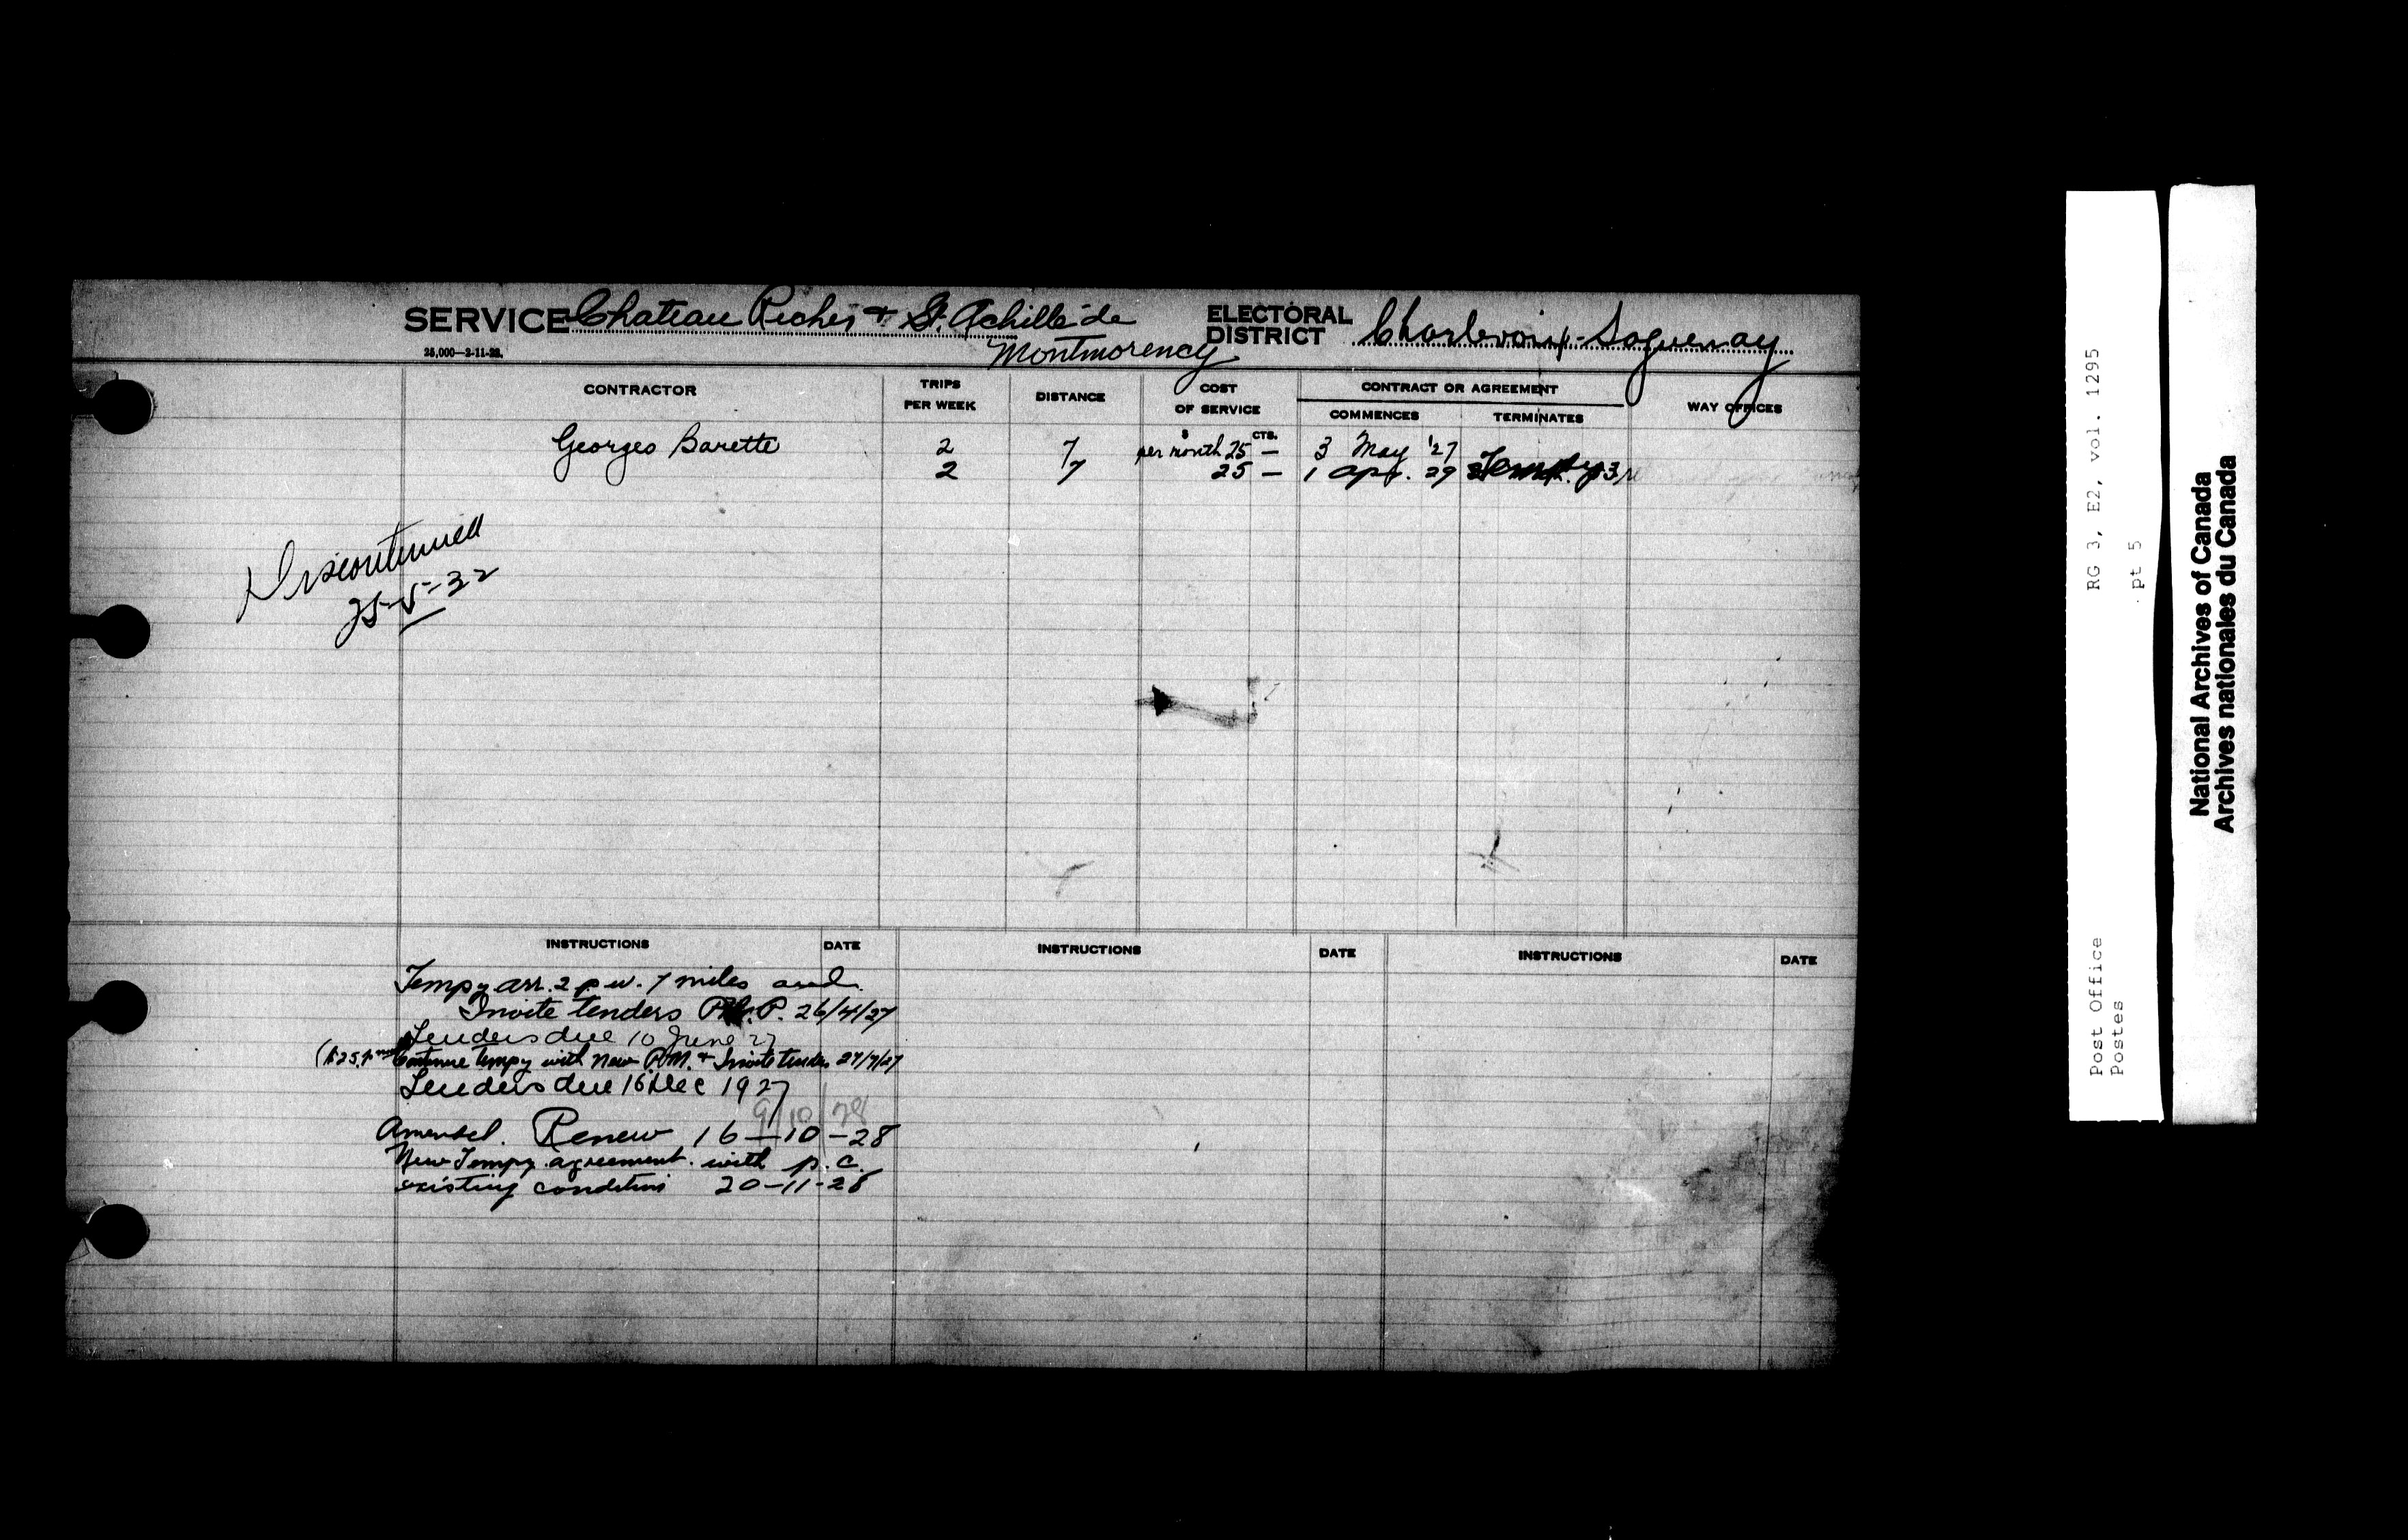 SERVICE Chateau Richer & St. Achille de
Montmorency
ELECTORAL
DISTRICT Charlevoix-Saguenay
25,000—2-11-22.
CONTRACTOR
TRIPS
PER WEEK
DISTANCE
COST
OF SERVICE
CONTRACT OR AGREEMENT
COMMENCES
TERMINATES
WAY OFFICES
$ CTS.
Georges Barette 2 7 per month 25 — 3 May '27
2 7 25 — 1 Apr. 29 Tempy
Discontinued
25-5-32
INSTRUCTIONS DATE INSTRUCTIONS DATE INSTRUCTIONS DATE
Tempy arr. 2 p w. 7 miles and
Invite tenders P. 26/4/27
Tenders due 10 June 27
Continue tempy with New P.M. & Invite tenders
Tenders due 16 Dec 1927
9/10/28
Amended. Renew 16-10-28
New Tempy agreement with p. c.
existing conditions 20-11-28
Post Office RG 3, E2, vol. 1295
Postes pt 5
National Archives of Canada
Archives nationales du Canada